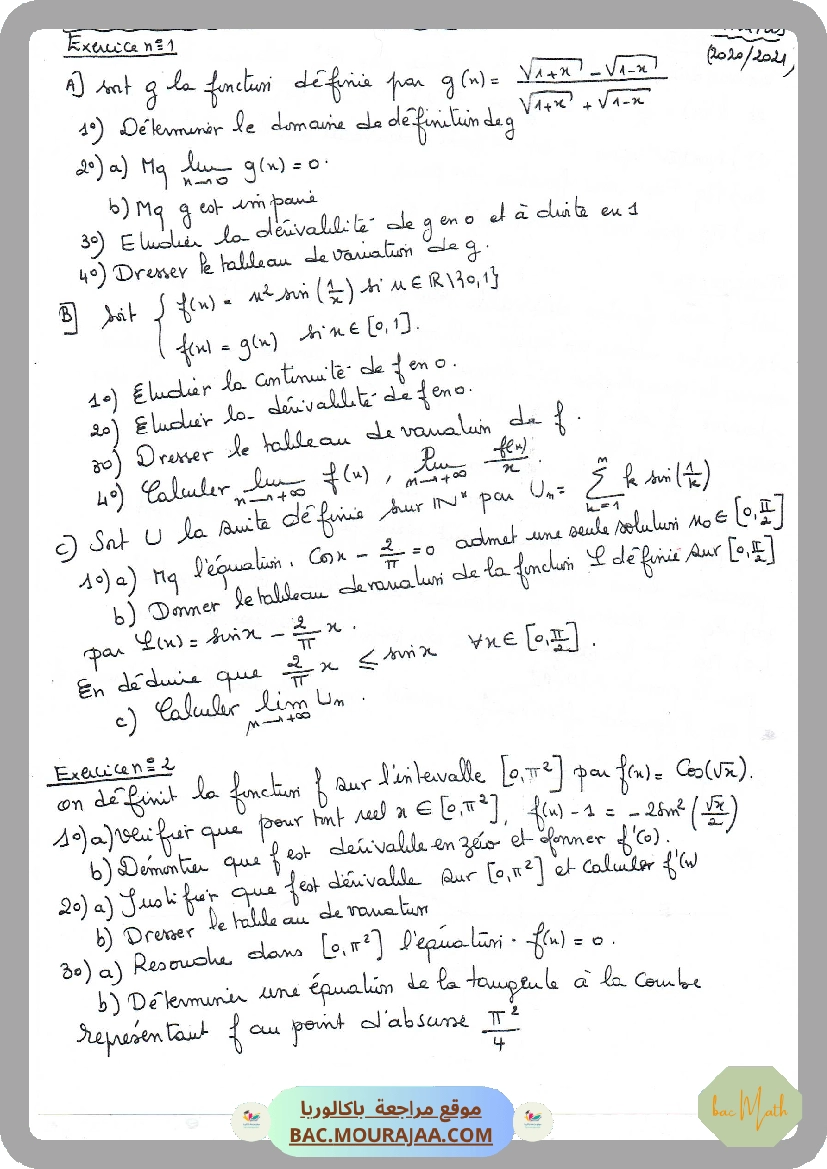 Exercice n=1
(2020/2021)
A] soit g la fonction définie par g(x) = (√1+x - √1-x) / (√1+x + √1-x)
1°) Déterminer le domaine de définition de g
2°) a) Mq lim x→0 g(x) = 0.
b) Mq g est impaire
3°) Etudier la dérivabilité de g en 0 et à droite en 1
4°) Dresser le tableau de variation de g.
B] Soit { f(x) = x² sin(1/x) si x ∈ ℝ\]0,1]
f(x) = g(x) si x ∈ [0,1].
1°) Etudier la continuité de f en 0.
2°) Etudier la dérivabilité de f en 0.
3°) Dresser le tableau de variation de f.
4°) Calculer lim x→+∞ f(x), lim x→+∞ f(x)/x
C) Soit U la suite définie sur IN* par Un = Σ k=1 n k sin(1/k)
1°) a) Mq l'équation. Cosx - 2/π = 0 admet une seule solution x₀ ∈ [0,π/2]
b) Donner le tableau de variation de la fonction φ définie sur [0,π/2]
par φ(x) = sinx - 2/π x.
En déduire que 2/π x ≤ sinx ∀x ∈ [0,π/2].
c) Calculer lim n→+∞ Un.
Exercice n=2
on définit la fonction f sur l'intervalle [0,π²] par f(x) = Cos(√x).
1°) a) vérifier que pour tout réel x ∈ [0,π²], f(x) - 1 = -2sin²(√x/2)
b) Démontrer que f est dérivable en zéro et donner f'(0).
2°) a) Justifier que f est dérivable sur [0,π²] et calculer f'(x)
b) Dresser le tableau de variation
3°) a) Resoudre dans [0,π²] l'équation. f(x) = 0.
b) Déterminer une équation de la tangente à la courbe
représentant f au point d'abscisse π²/4
موقع مراجعة باكالوريا
BAC.MOURAJAA.COM
bac Math